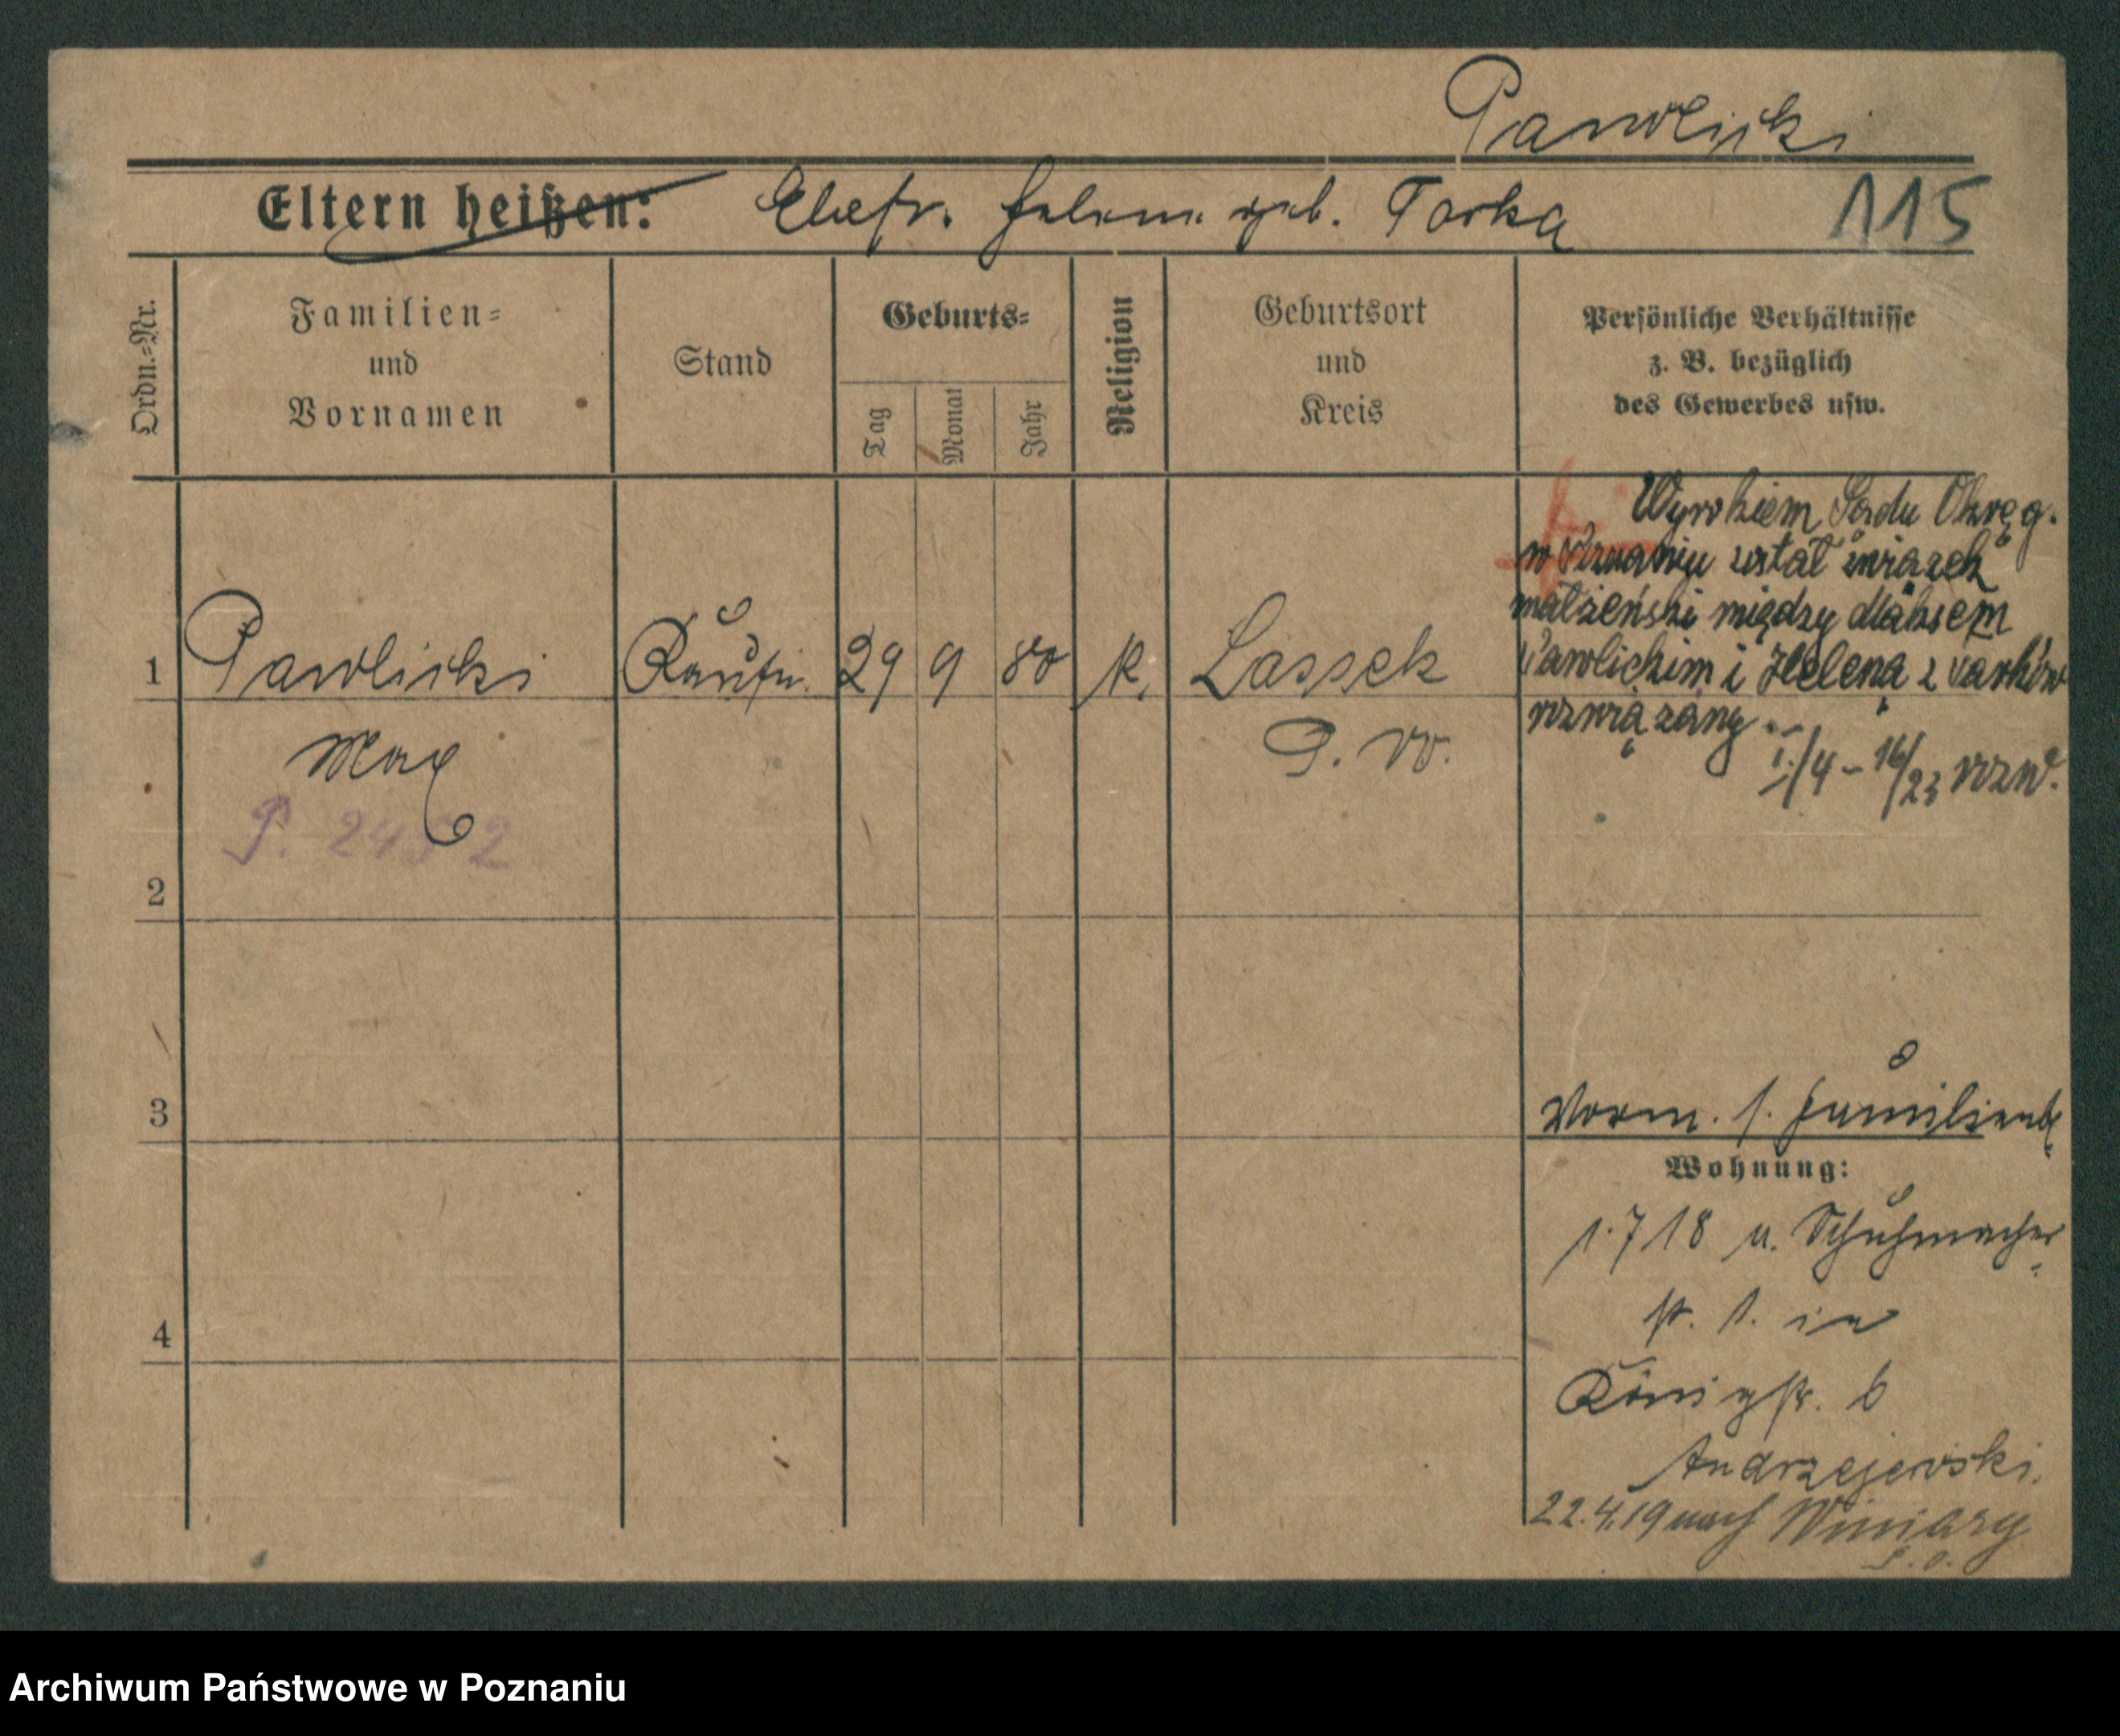 Pawlicki
Eltern heißen: Ehefr. Helene geb. Torka
115
Ordn.-Nr.
Familien-
und
Vornamen
Stand
Geburts-
Tag
Monat
Jahr
Religion
Geburtsort
und
Kreis
Persönliche Verhältnisse
z. B. bezüglich
des Gewerbes usw.
Wyrokiem Sądu Okręg.
w Poznaniu został związek
małżeński między Maksem
Pawlickim i Heleną z
rozwiązany
1 Pawlicki Kaufm. 29 9 80 K. Lassek
Max P. W.
P. 2452
2
3
4
Vorm. s. Familienbl.
Wohnung:
1.7 18 u. Schuhmacher
str. 1. in
Königstr. 6
Andrzejewski.
22.4.19 nach Winiary
Archiwum Państwowe w Poznaniu